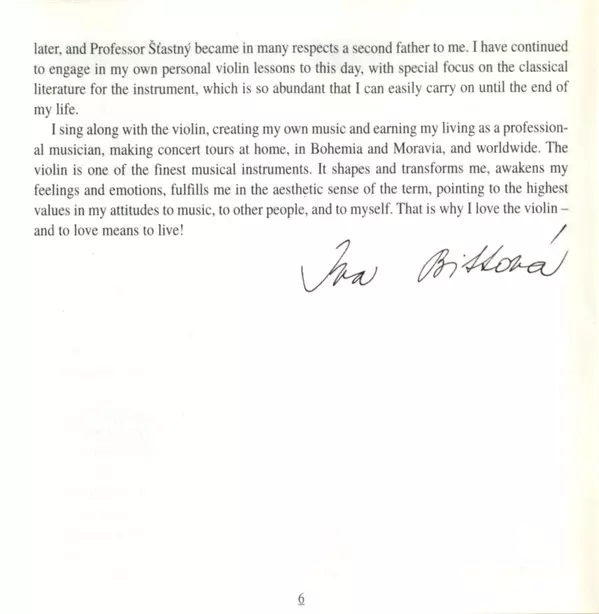 later, and Professor Šťastný became in many respects a second father to me. I have continued
to engage in my own personal violin lessons to this day, with special focus on the classical
literature for the instrument, which is so abundant that I can easily carry on until the end of
my life.
I sing along with the violin, creating my own music and earning my living as a profession-
al musician, making concert tours at home, in Bohemia and Moravia, and worldwide. The
violin is one of the finest musical instruments. It shapes and transforms me, awakens my
feelings and emotions, fulfills me in the aesthetic sense of the term, pointing to the highest
values in my attitudes to music, to other people, and to myself. That is why I love the violin –
and to love means to live!
Iva Bittová
6